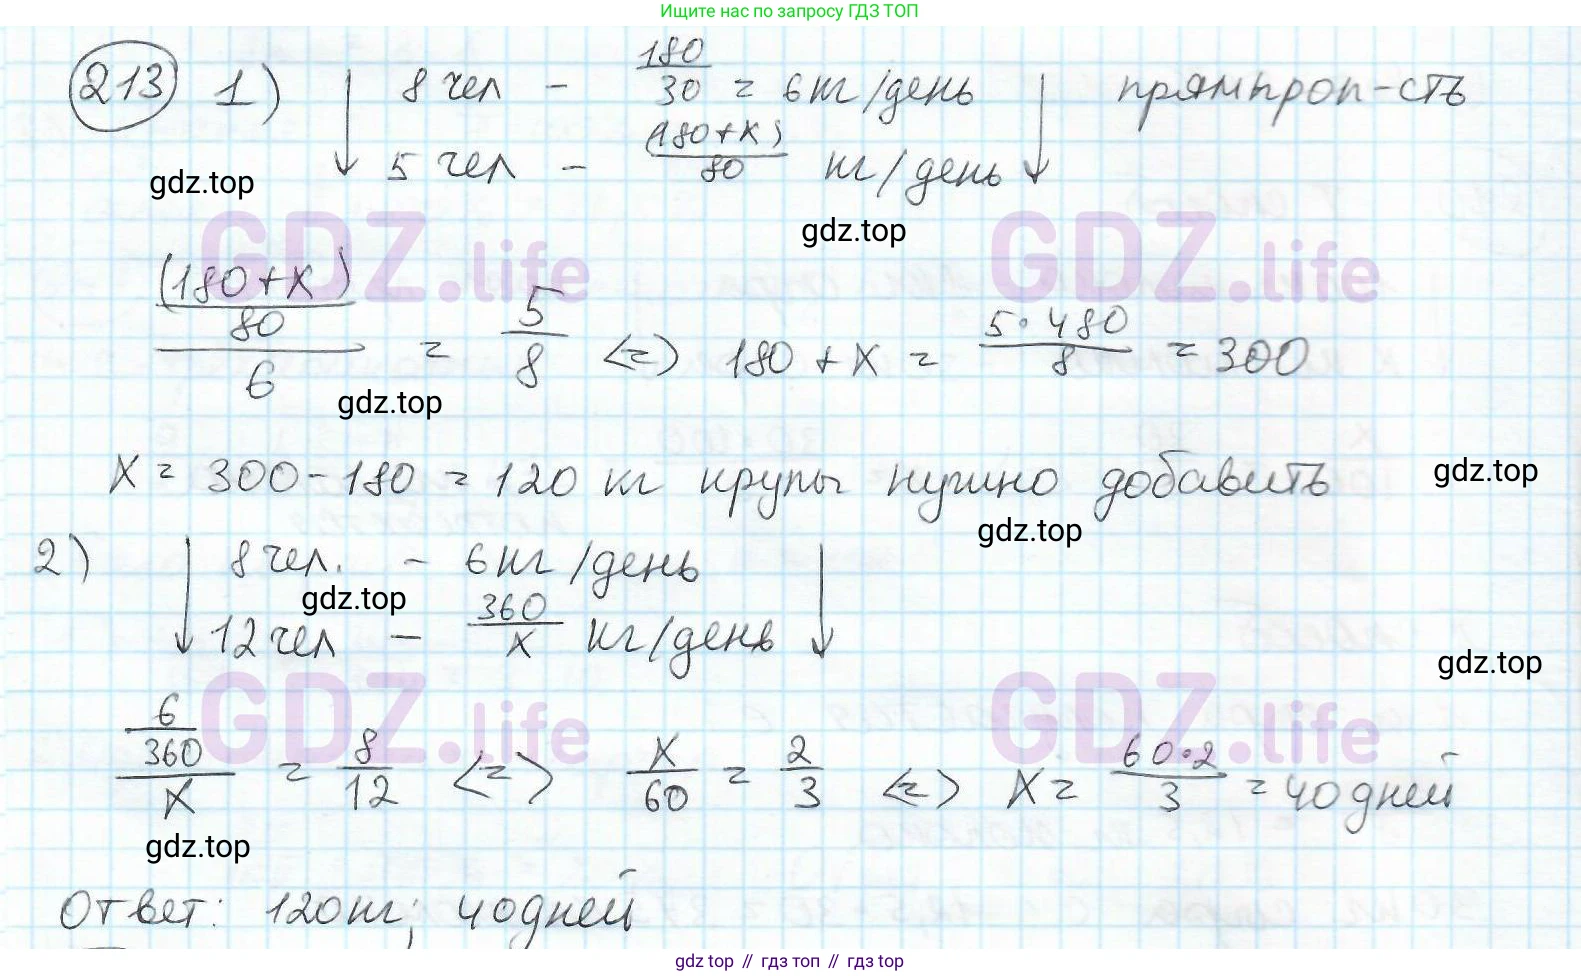 Ищите нас по запросу ГДЗ ТОП
213 1) 8 чел - 180/30 = 6 кг/день прямпроп-сть
5 чел - (180+x)/80 кг/день
gdz.top
gdz.top
GDZ.life GDZ.life
((180+x)/80)/6 = 5/8 <=> 180 + x = 5·480/8 = 300
gdz.top
x = 300 - 180 = 120 кг крупы нужно добавить
gdz.top
gdz.top
2) 8 чел. - 6 кг/день
gdz.top
12 чел - 360/x кг/день
gdz.top
GDZ.life GDZ.life
6/(360/x) = 8/12 <=> x/60 = 2/3 <=> x = 60·2/3 = 40 дней
gdz.top
Ответ: 120 кг; 40 дней
gdz top // гдз топ // gdz top